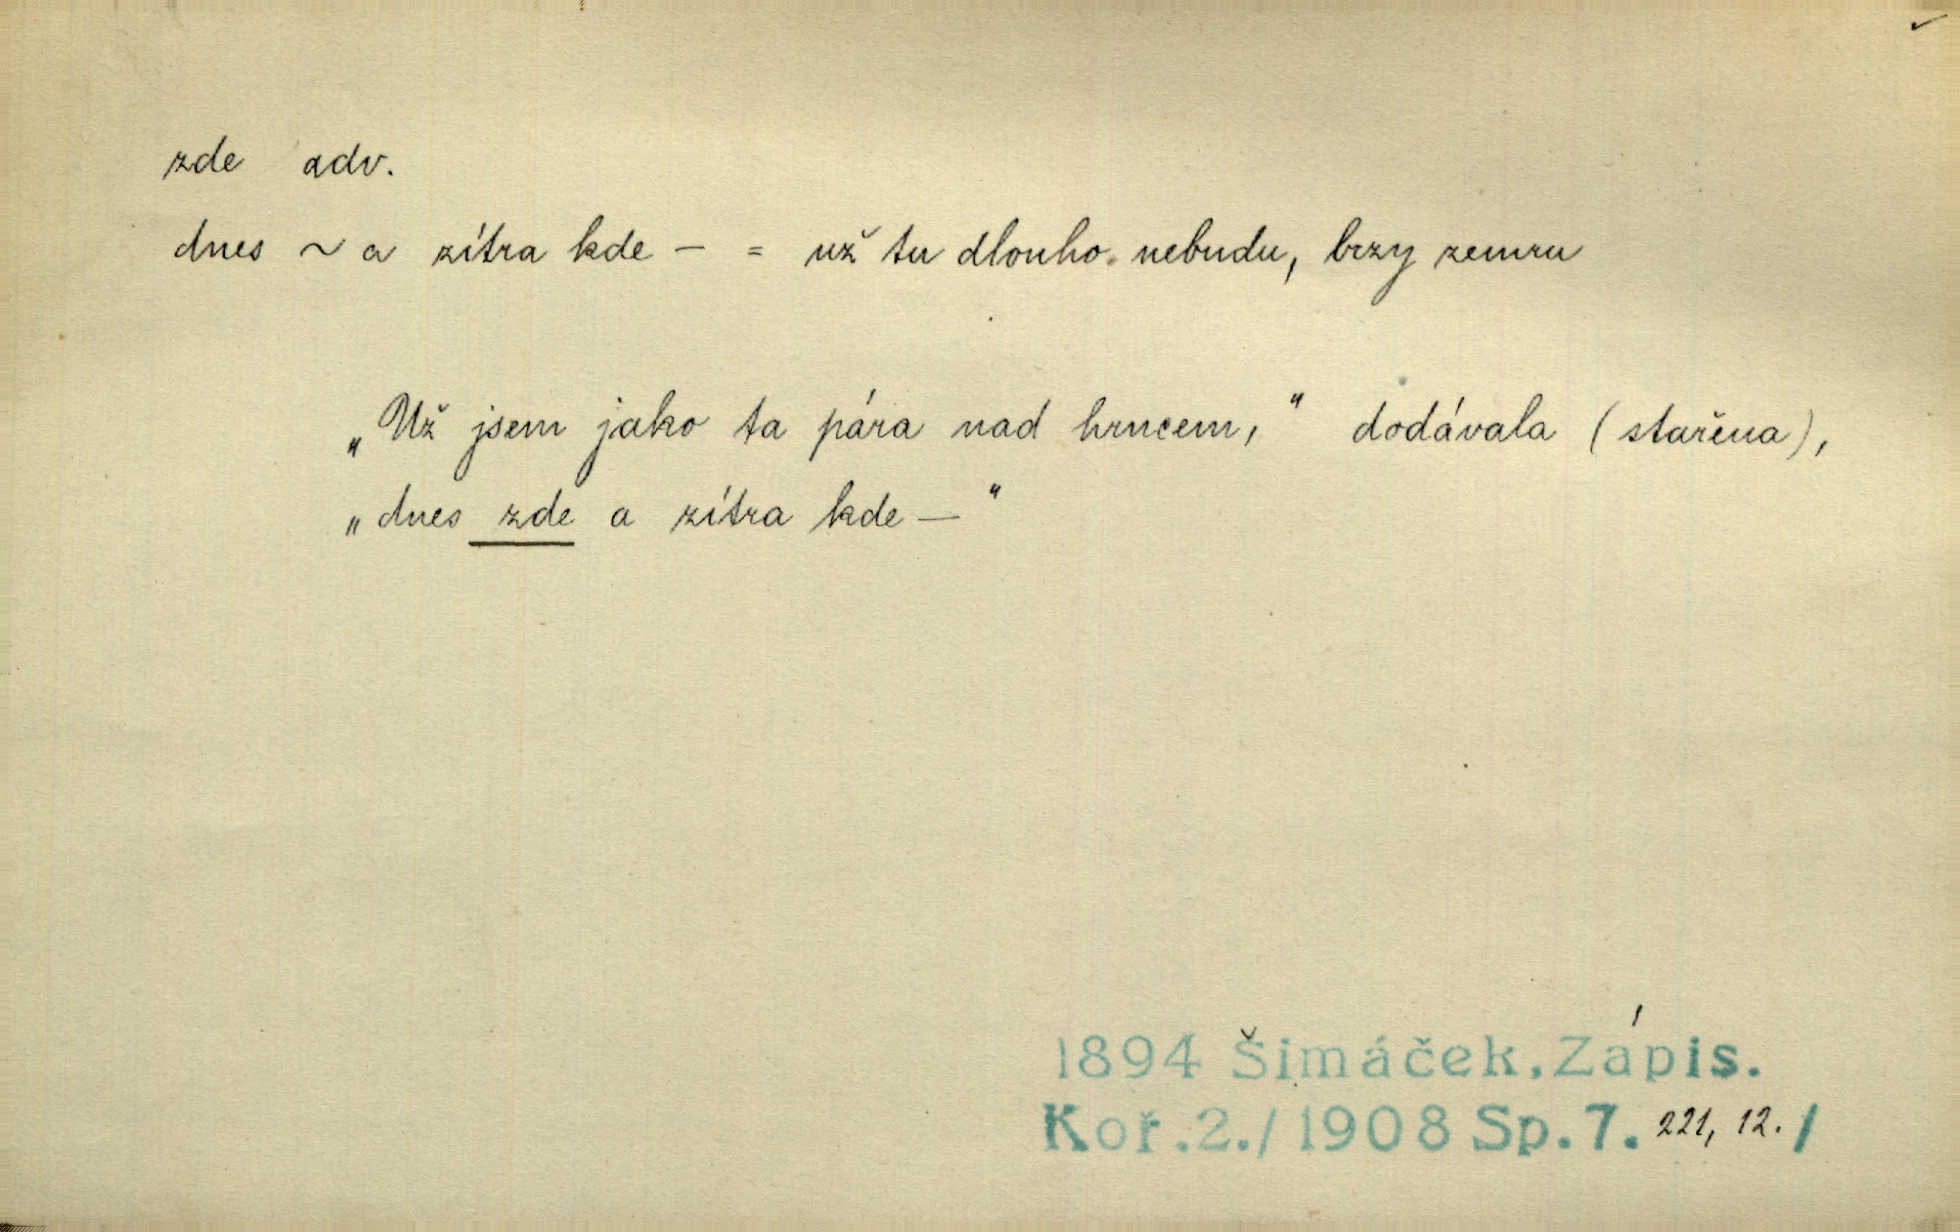 zde adv.
dnes ~ a zítra kde — = už tu dlouho nebudu, brzy zemru
„Už jsem jako ta pára nad hrncem,“ dodávala (stařena),
„dnes zde a zítra kde —“
1894 Šimáček, Zápis.
Koř. 2. / 1908 Sp. 7. 221, 12. /